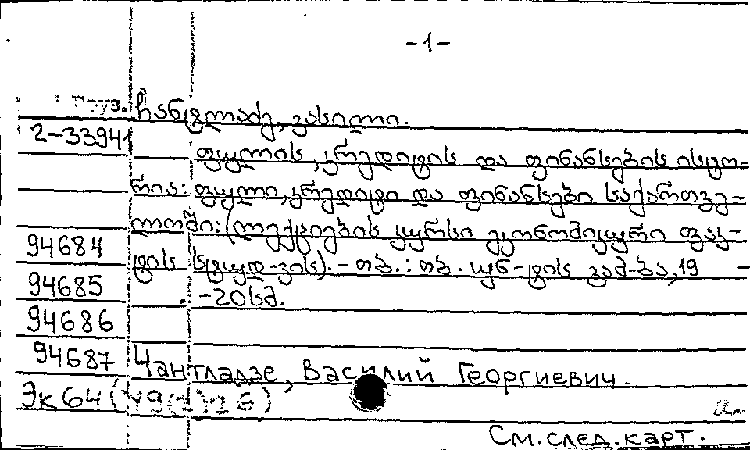 -1-
Груз. ჩანტლაძე, ვასილი.
2-33941
ფულის, კრედიტის და ფინანსების ისტო-
რია: ფული, კრედიტი და ფინანსები საქართვე-
ლოში: (ლექციების კურსი ეკონომიკური ფაკ-
94684 ტის სტუდ-ვის). - თბ.: თბ. უნ-ტის გამ-ბა, 19 -
94685 -20სმ.
94686
94687 Чантладзе, Василий Георгиевич
Эк64
См. след. карт.